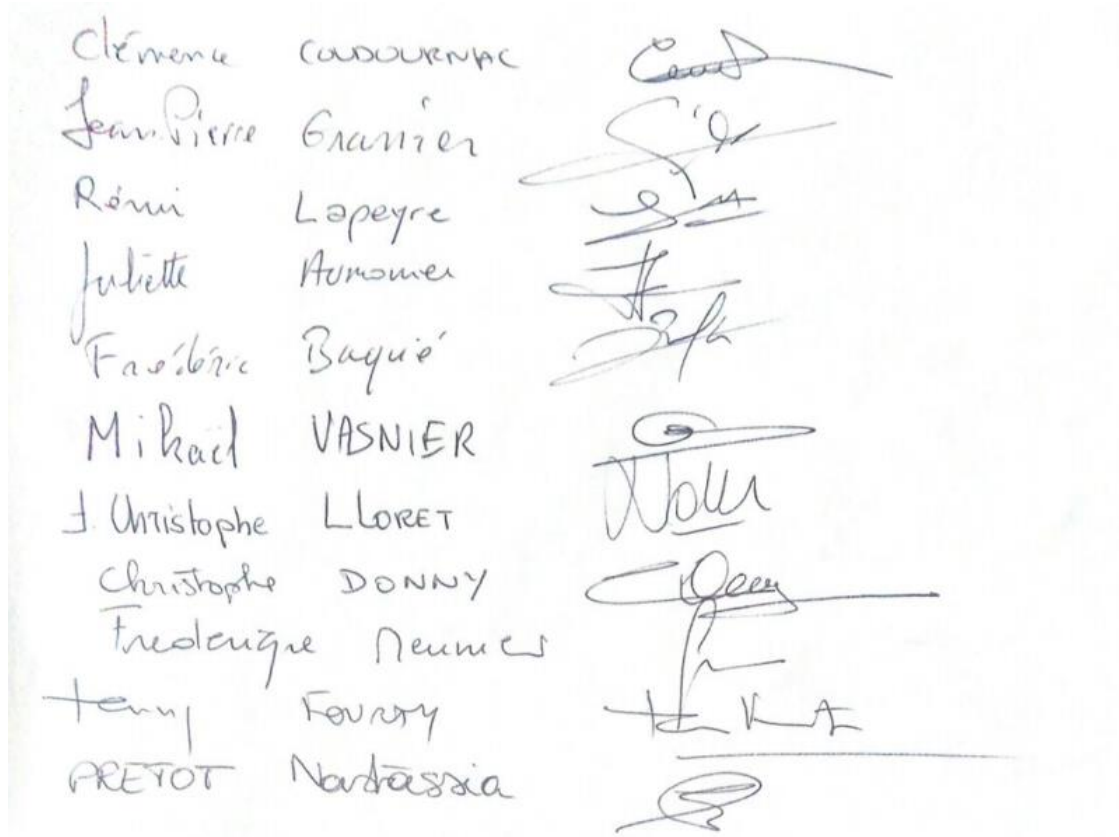 Clémence COUDOURNAC
Jean-Pierre Granier
Rémi Lapeyre
Juliette
Frédéric Baquié
Mikaël VASNIER
J. Christophe LLORET
Christophe DONNY
Frederique Meunier
FOURTY
PRETOT Nastassia